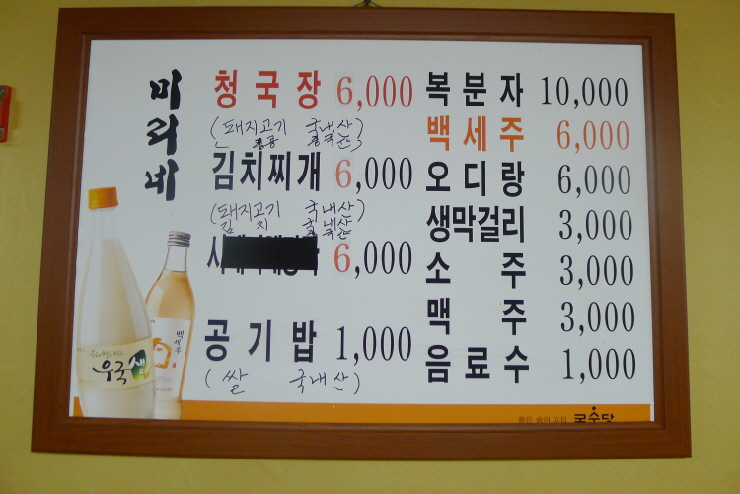 미리내
청국장 6,000
(돼지고기 국내산)
김치찌개 6,000
(돼지고기 국내산)
김치 국내산
6,000
공기밥 1,000
(쌀 국내산)
복분자 10,000
백세주 6,000
오디랑 6,000
생막걸리 3,000
소주 3,000
맥주 3,000
음료수 1,000
우국생
백세주
좋은 술의 고집 국순당